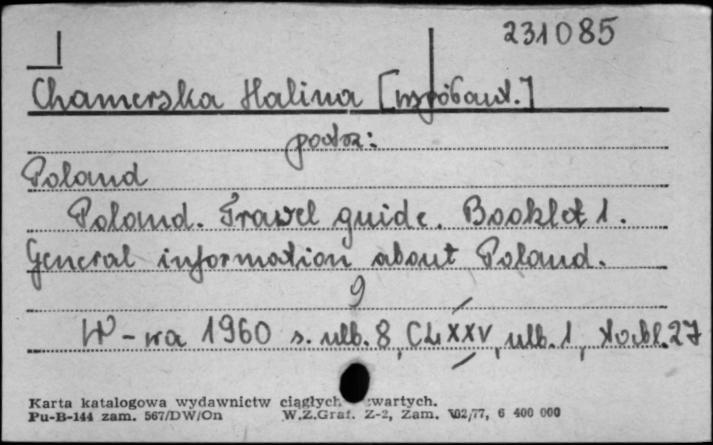 231085
Chamerska Halina [współaut.]
podz:
Poland
Poland. Travel guide. Booklet 1.
General information about Poland.
9
W-wa 1960 s. nlb. 8, CLXXV, nlb. 1, tabl. 27
Karta katalogowa wydawnictw ciągłych zwartych.
Pu-B-144 zam. 567/DW/On W.Z.Graf. Z-2, Zam. 102/77, 6 400 000